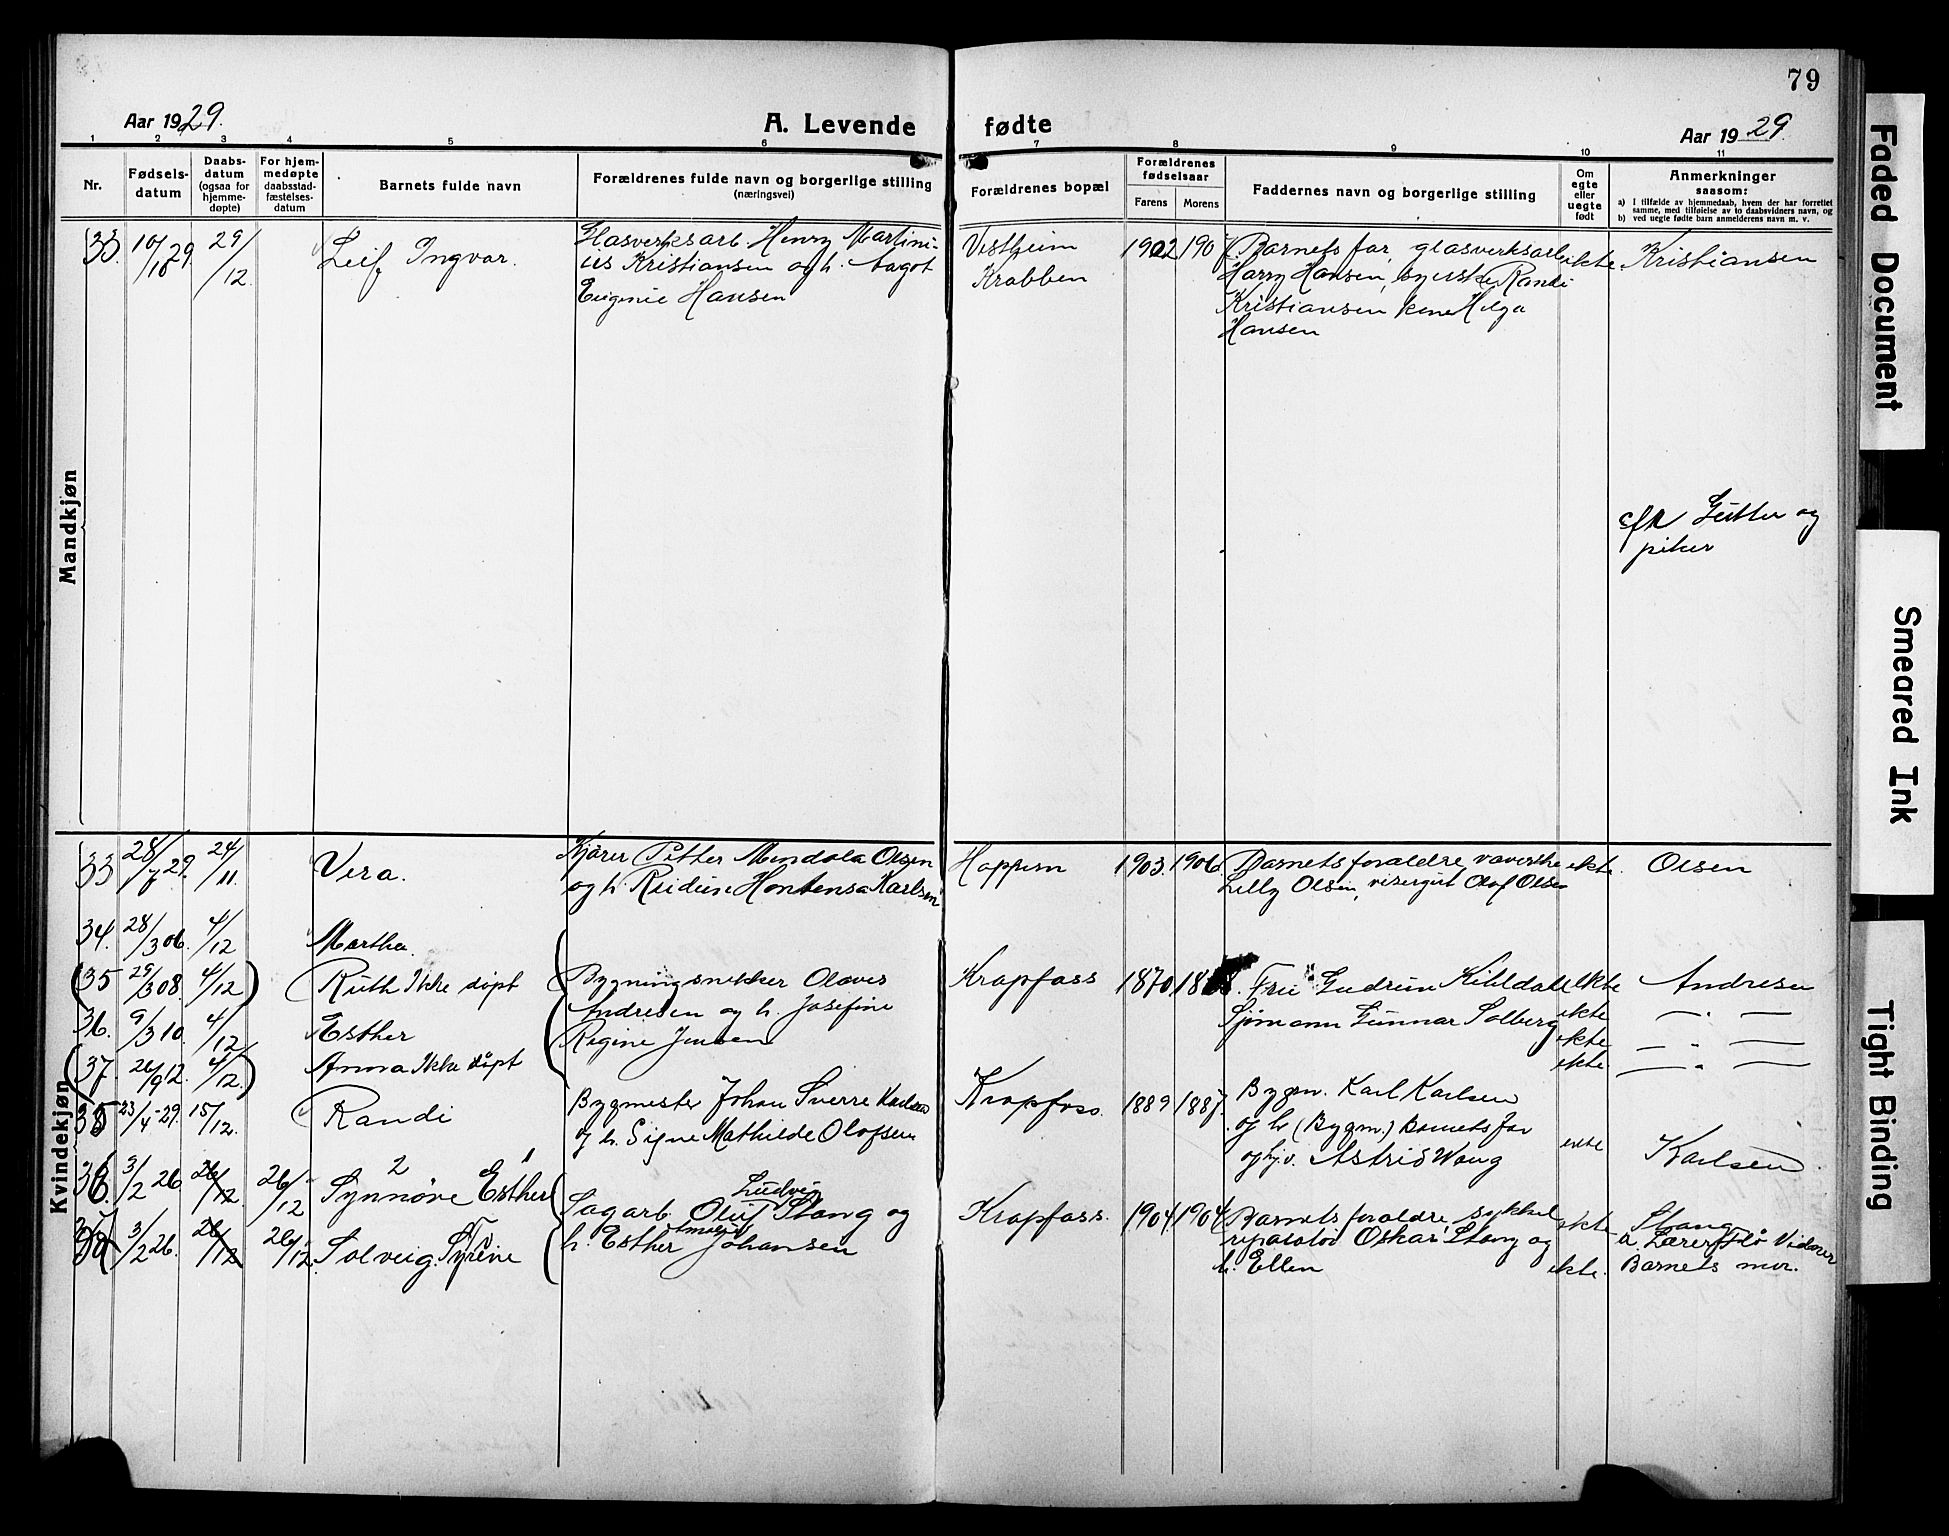 79
Aar 1929.
A. Levende fødte
Aar 1929.
1 2 3 4 5 6 7 8 9 10 11
Nr.
Fødsels-
datum
Daabs-
datum
(ogsaa for
hjemme-
døpte)
For hjem-
medøpte
daabsstad-
fæstelses-
datum
Barnets fulde navn
Forældrenes fulde navn og borgerlige stilling
(næringsvei)
Forældrenes bopæl
Forældrenes
fødselsaar
Farens Morens
Faddernes navn og borgerlige stilling
Om
egte
eller
uegte
født
Anmerkninger
saasom:
a) I tilfælde av hjemmedaab, hvem der har forrettet
samme, med tilføielse av to daabsvidners navn, og
b) ved uegte født barn anmelderens navn m. v.
Mandkjøn
33. 10/10 29. 29/12. Leif Ingvar.
Glasverksarb Henry Martini-
us Kristiansen og h. Aagot
Eugenie Hansen
Vestheim
Krabben
1902 190
Barnets far, glasverksarb
Harry Hansen, syerske Randi
Kristiansen, Helga
Hansen
ekte. Kristiansen
Gutter og
piker
Kvindekjøn
33 28/7 29. 24/11. Vera.
Kjører Petter Mendola Olsen
og h. Reidun Hortensa Karlsen
Hoppern 1903. 1906.
Barnets foreldre, væverske
Lilly Olsen, visergut Olof Olsen
ekte. Olsen
34. 28/3 06. 4/12 Martha.
(35 29/3 08. 4/12) Ruth Ikke døpt
36. 9/3 10. 4/12 Esther
(37. 26/9 12. 4/12.) Anna Ikke døpt
Bygningsnekker Olaves
Andresen og h. Josefine
Regine Jensen
Krapfoss 1870
Fru Gudrun Kihldal
Sjømann Gunnar Solberg
ekte Andresen
ekte — " —
ekte — " —
ekte — " —
35 23/4 - 29. 15/12. Randi
Bygmester Johan Sverre Karlsen
og h. Signe Mathilde Olofsen
Krapfoss. 1889 1887.
Bygm. Karl Karlsen
og h (Bygm.) Barnets far
og hj.v. Astrid Wang
ekte Karlsen
36. 3/2 26. 26/12 26/12 Synnøve Esther
2 1
37 3/2 26. 26/12 26/12. Solveig Syrene
Ludvig
Sagarb. Oluf Stang og
h. Esther Johansen
Krapfoss. 1904 1904
Barnets foreldre, sykkel
reparatør Oskar Stang og
h. Ellen
ekte
ekte.
Stang
a. Lærer Flø Vidner
Barnets mor.
Faded Document
Smeared Ink
Tight Binding